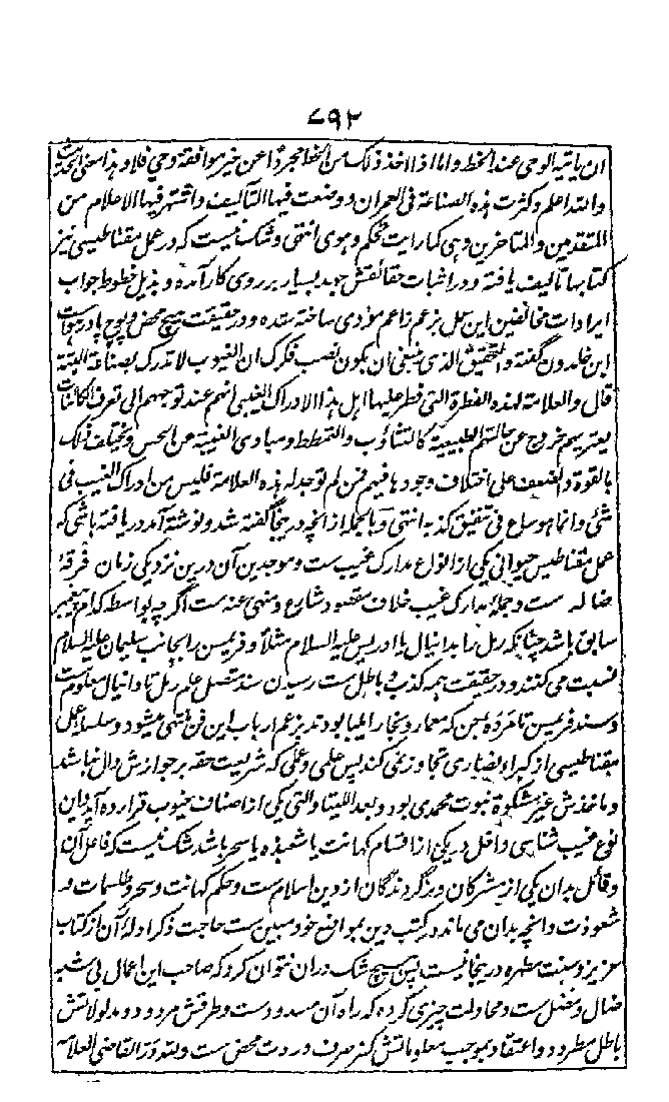 ۷۹۲
ان یاتیه الوحی عند الخط واما اذا اخذ ذلک من الخط مجردًا عن غیر موافقة وحی فلا وهذا معنی الحدیث
والله اعلم وکثرت هذه الصناعة فی العمران ووضعت فیها التآلیف واشتهر فیها الاعلام من
المتقدمین والمتاخرین وهی کما رایت تحکم وهوی انتهی وشک نیست که در عمل مقناطیسی نیز
کتابها تالیف یافته و در اثبات حقائقش جد بسیار بر روی کار آمده و بذیل خطوط جواب
ایرادات مخالفین این عمل بزعم زاعم مؤدی ساخته شده و در حقیقت هیچ محض و پوچ پادر هواست
ابن خلدون گفته والتحقیق الذی ینبغی ان یکون نصب فکرک ان الغیوب لا تدرک بصناعة البتة
قال والعلامة لهذه الفطرة التی فطر علیها اهل هذا الادراک الغیبی انهم عند توجههم الی تعرف الکائنات
یعتریهم خروج عن حالتهم الطبیعیة کالتثاؤب والتمطط ومبادی الغیبة عن الحس ویختلف ذلک
بالقوة والضعف علی اختلاف وجودها فیهم فمن لم توجد له هذه العلامة فلیس من ادراک الغیب فی
شئ وانما هو ساع فی تنفیق کذبه انتهی وبالجمله از آنچه درینجا گفته شد و نوشته آمد دریافته باشی که
عمل مقناطیس حیوانی یکی از انواع مدارک غیب ست و موجدین آن درین نزدیکی زمان فرقهٔ
ضاله ست و جملهٔ مدارک غیب خلاف مقصود شارع و منهی عنه ست اگرچه بواسطه کدام پیغمبر
سابق باشد چنانکه رمل را بدانیال یا ادریس علیه السلام مثلاً و فریمسن را بجانب سلیمان علیه السلام
نسبت می کنند و در حقیقت همه کذب و باطل ست رسیدن سند متصل علم رمل تا دانیال معلوم ست
و سند فریمسن تا مرده بجن که معمار و نجار الیا بودند بزعم ارباب این فن منتهی میشود و سلسله عمل
مقناطیسی از کبراء نصاری تجاوز نمی کند پس علمی و عملی که شریعت حقه بر جوازش دال نباشد
و ماخذش غیر مشکوة نبوت محمدی بود و بعد اللتیا والتی یکی از اصناف جنوب قرار داده آید و این
نوع غیب شناسی داخل در یکی از اقسام کهانت یا شعبده یا سحر باشد شک نیست که فاعل آن
و قائل بدان یکی از مشرکان و برگردندگان از دین اسلام ست و حکم کهانت و سحر و طلسمات و
شعوذت و آنچه بدان می ماند در کتب دین بمواضع خود مبین ست حاجت ذکر ادلهٔ آن از کتاب
عزیز و سنت مطهره درینجا نیست پس هیچ شک دران نتوان کرد که صاحب این اعمال بی شبه
ضال و مضل ست و محاولت چیزی کرده که راه آن مسدود ست و طرقش مردود و مدلولاتش
باطل مطرود و اعتقاد بموجب معلوماتش کفر صرف و ردت محض ست ولله در القاضی العلامه